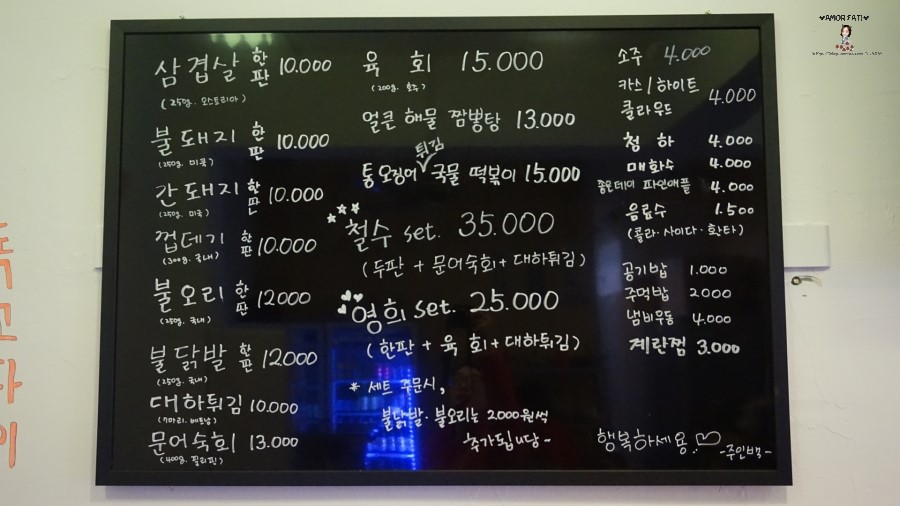 삼겹살 한판 10.000
(250g. 오스트리아)
불돼지 한판 10.000
(250g. 미국)
간돼지 한판 10.000
(250g. 미국)
껍데기 한판 10.000
(300g. 국내)
불오리 한판 12000
(250g. 국내)
불닭발 한판 12.000
(250g. 국내)
대하튀김 10.000
(7마리. 베트남)
문어숙회 13.000
(400g. 필리핀)
육회 15.000
(200g. 호주)
얼큰 해물 짬뽕탕 13.000
통오징어 튀김 국물 떡볶이 15.000
철수 set. 35.000
(두판 + 문어숙회 + 대하튀김)
영희 set. 25.000
(한판 + 육회 + 대하튀김)
* 세트 주문시,
불닭발. 불오리는 2000원씩
추가됩니당~
소주 4.000
카스/하이트
클라우드 4.000
청하 4.000
매화수 4.000
좋은데이 파인애플 4.000
음료수 1.500
(콜라·사이다·환타)
공기밥 1.000
주먹밥 2000
냄비우동 4.000
계란찜 3.000
행복하세용..♡
-주인백-
♥AMOR FATI♥